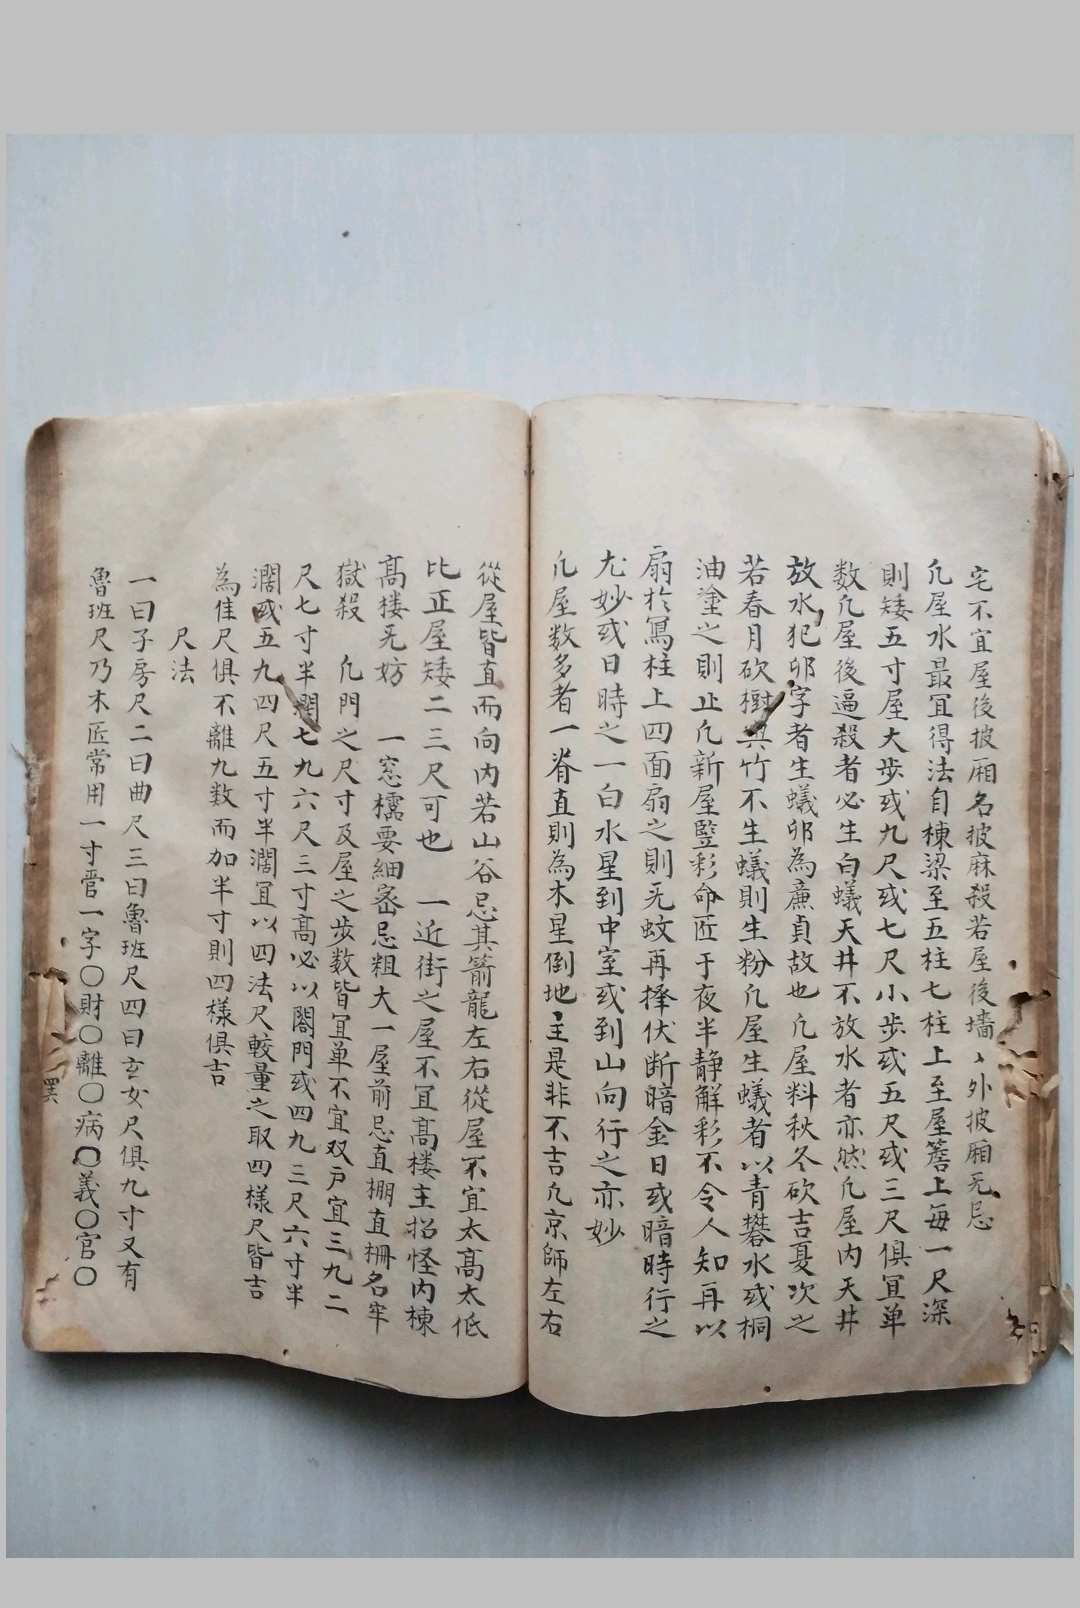 宅不宜屋後披厢名披麻殺若屋後墻、外披厢无忌
凢屋水最冝得法自棟梁至五柱七柱上至屋簷上每一尺深
則矮五寸屋大歩或九尺或七尺小歩或五尺或三尺俱冝单
数凢屋後逼殺者必生白蟻天井不放水者亦然凢屋内天井
放水犯卯字者生蟻卯為亷貞故也凢屋料秋冬砍吉夏次之
若春月砍樹與竹不生蟻則生粉凢屋生蟻者以青礬水或桐
油塗之則止凢新屋竪彩命匠于夜半静解彩不令人知再以
扇於冩柱上四面扇之則无蚊再擇伏断暗金日或暗時行之
尤妙或日時之一白水星到中室或到山向行之亦妙
凢屋数多者一脊直則為木星倒地主是非不吉凢京師左右
從屋皆直而向内若山谷忌其箭龍左右從屋不宜太高太低
比正屋矮二三尺可也 一近街之屋不冝高楼主招怪内棟
高楼无妨 一窓櫺要細宻忌粗大一屋前忌直棚直栅名牢
獄殺 凢門之尺寸及屋之歩数皆冝单不宜双戸宜三九二
尺七寸半濶七九六尺三寸高必以閤門或四九三尺六寸半
濶或五九四尺五寸半濶冝以四法尺較量之取四様尺皆吉
為佳尺俱不離九数而加半寸則四様俱吉
尺法
一曰子房尺二曰曲尺三曰魯班尺四曰玄女尺俱九寸又有
魯班尺乃木匠常用一寸管一字〇財〇離〇病〇義〇官〇